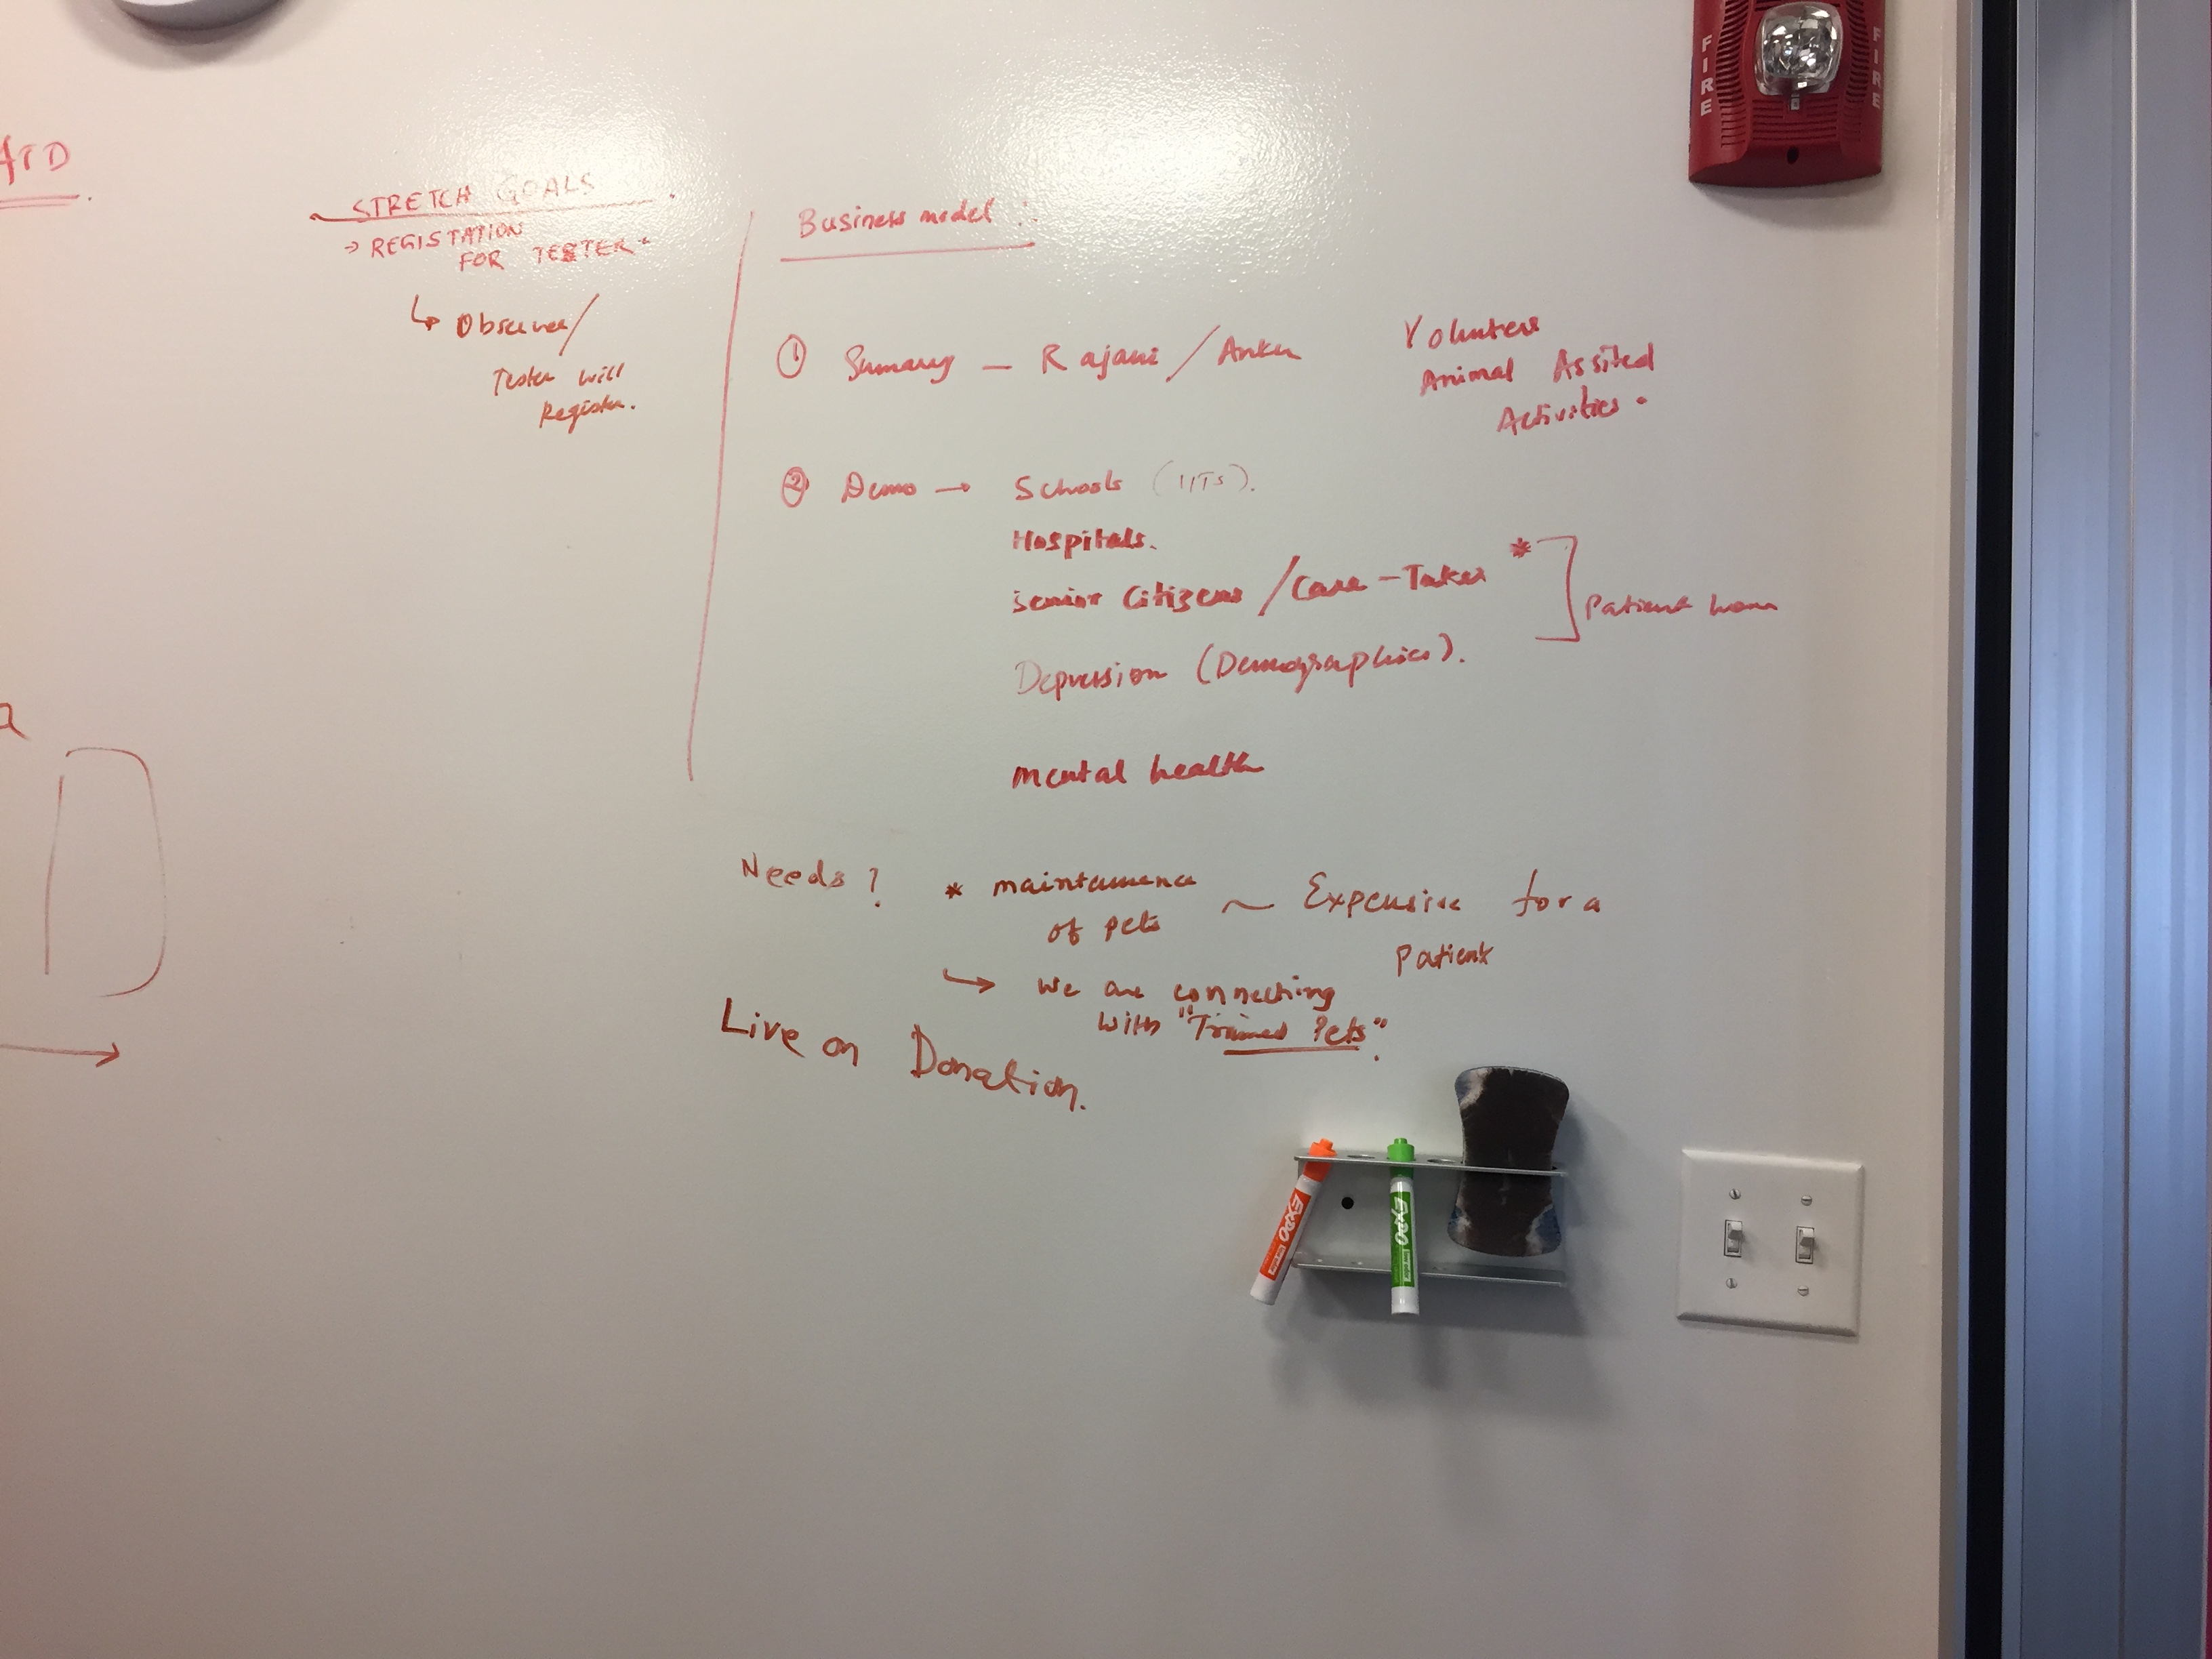 STRETCH GOALS
→ REGISTATION
FOR TESTER
↳ Observer/
Tester will
Register.
Business model :
① Sumary — Rajani / Anku
Volunteers
Animal Assited
Activities.
② Demo → Schools (IITs).
Hospitals.
Senior Citizens / Care-Taker *
Patient
Depression (Demographics).
mental health
Needs ? * maintainence
of pets ~ Expensive for a
Patient
↳ We are connecting
with "Trained Pets".
Live on Donation.
FIRE
FIRE
EXPO
EXPO